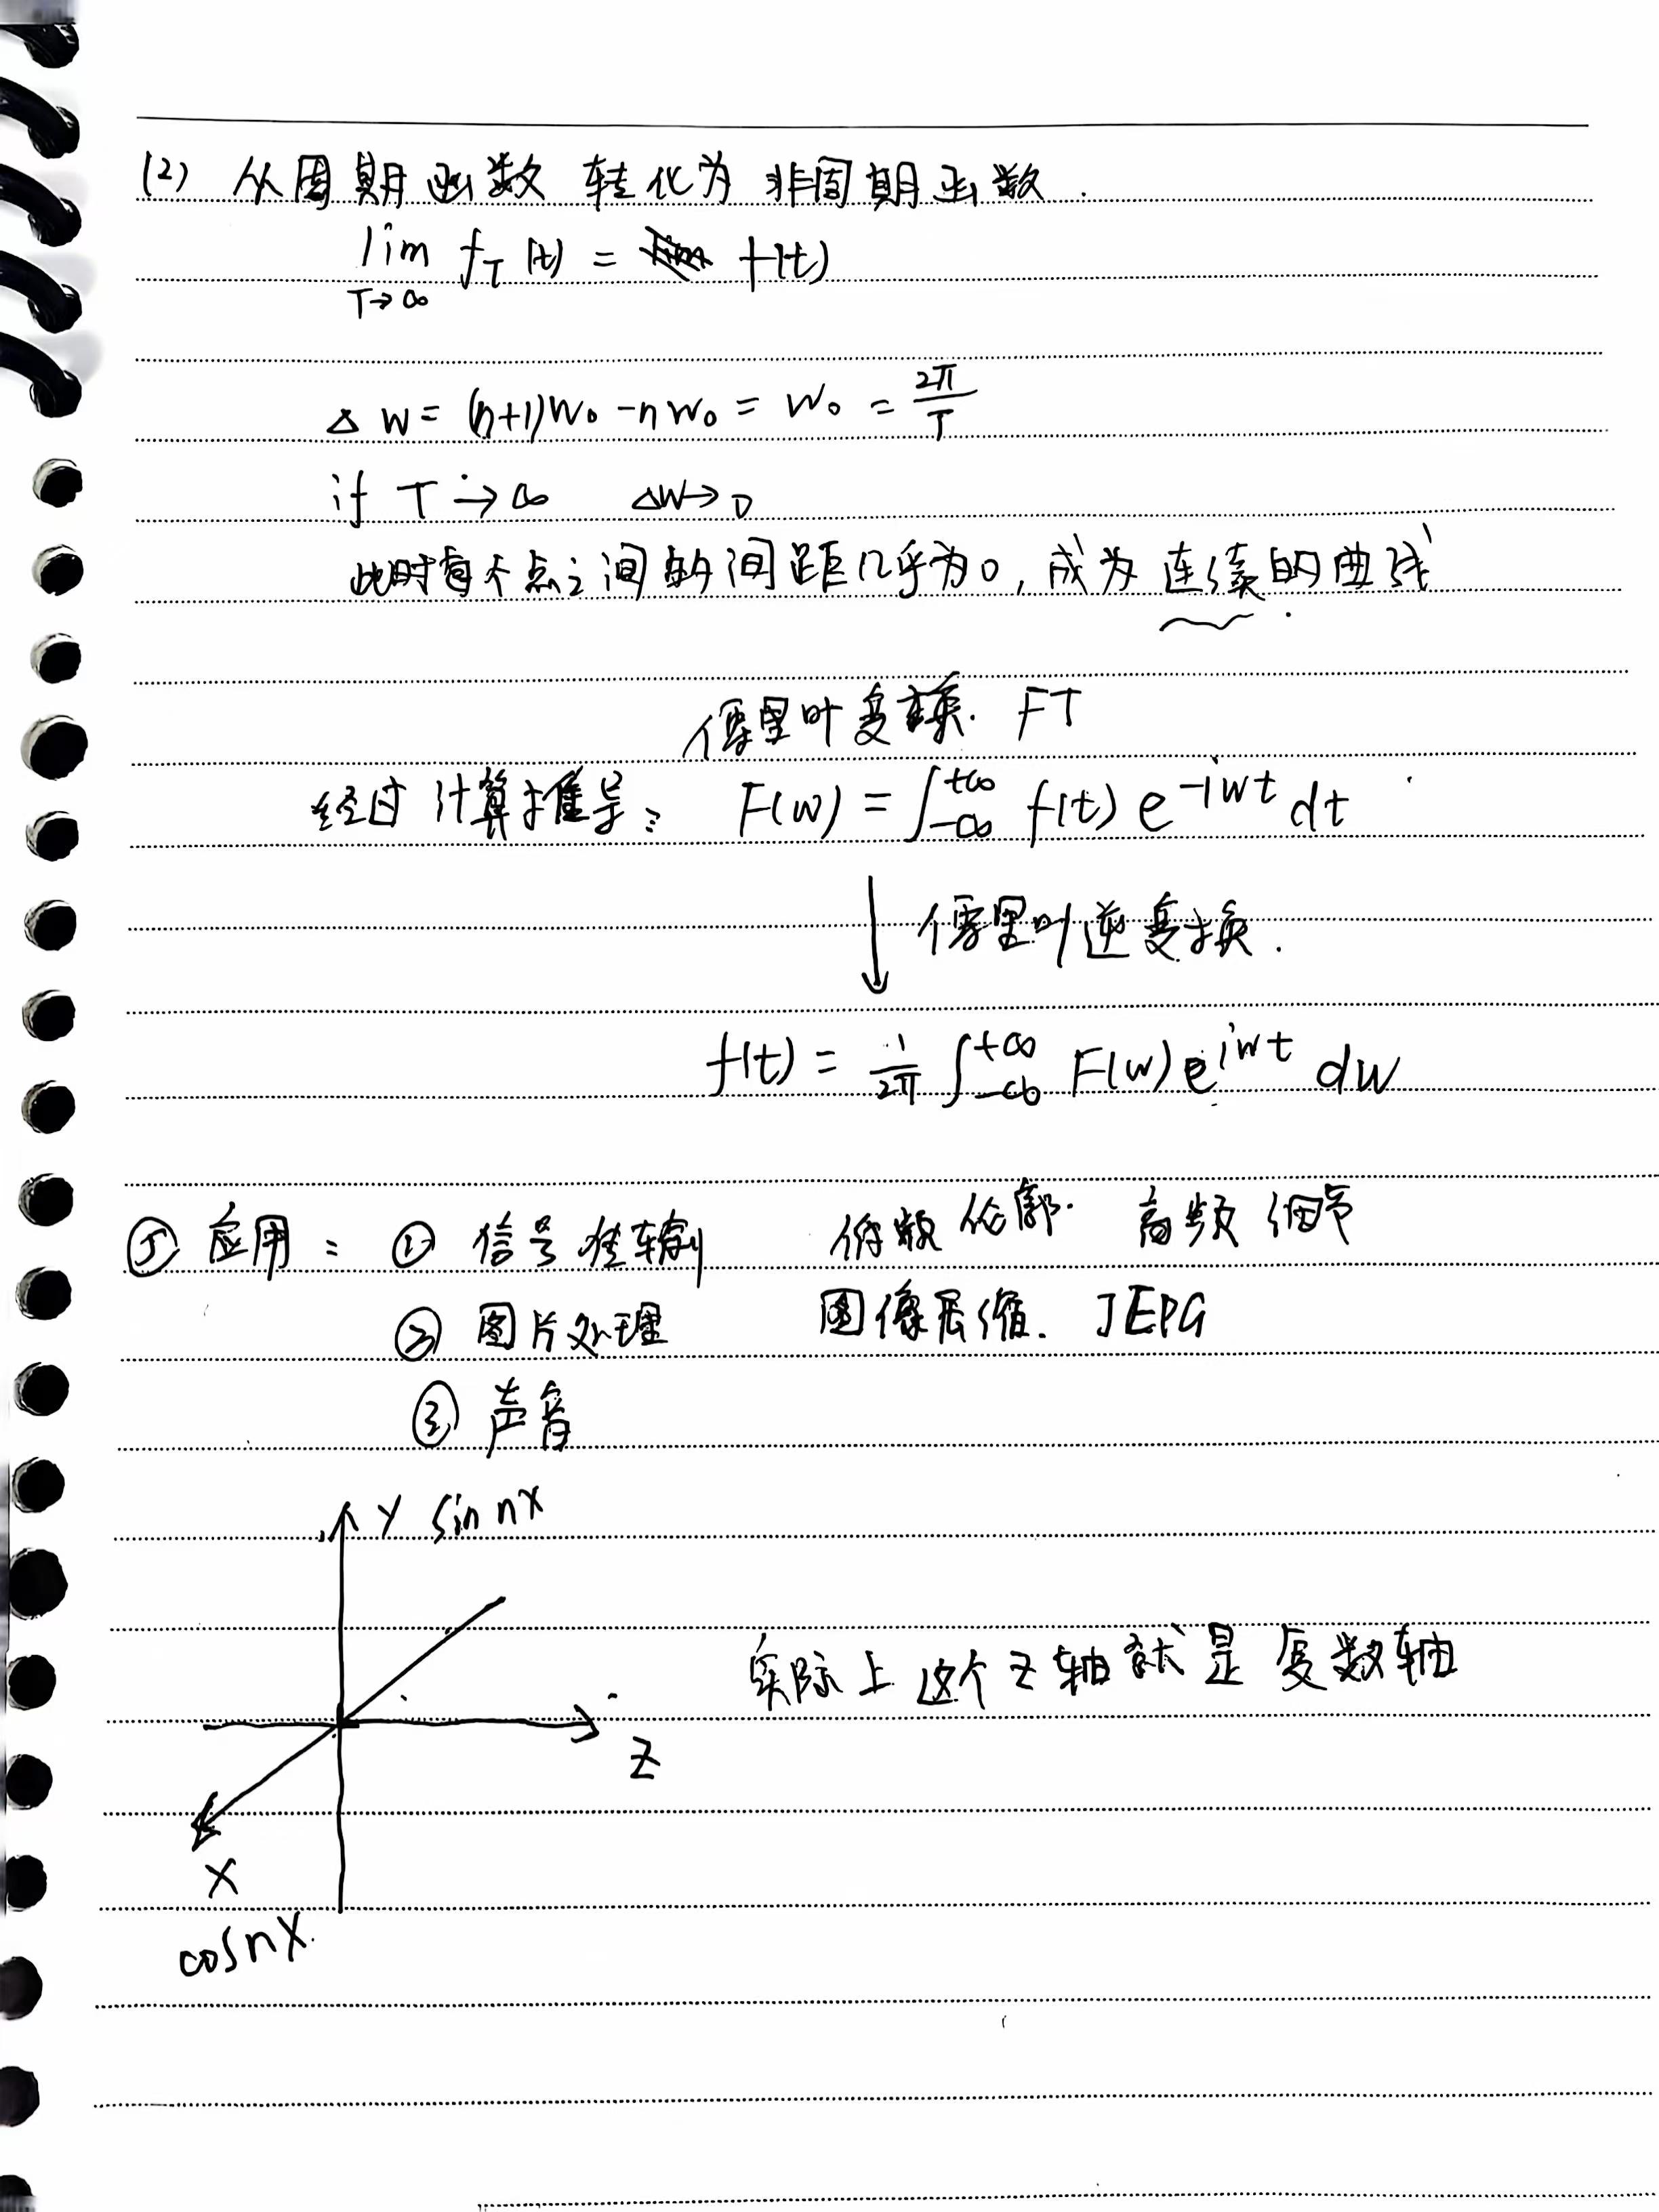 (2) 从周期函数 转化为 非周期函数.
lim f_T(t) = f(t)
T→∞
Δw = (n+1)w₀ - nw₀ = w₀ = 2π/T
if T→∞ Δw→0
此时每个点之间的间距几乎为0, 成为连续的曲线
傅里叶变换. FT
经过计算推导: F(w) = ∫_{-∞}^{+∞} f(t) e^{-iwt} dt
↓ 傅里叶逆变换.
f(t) = 1/2π ∫_{-∞}^{+∞} F(w) e^{iwt} dw
⑤ 应用: ① 信号传输 低频 轮廓. 高频 细节
② 图片处理 图像压缩. JEPG
③ 声音
Y sin nx
实际上这个Z轴就是复数轴
Z
X
cosnX.